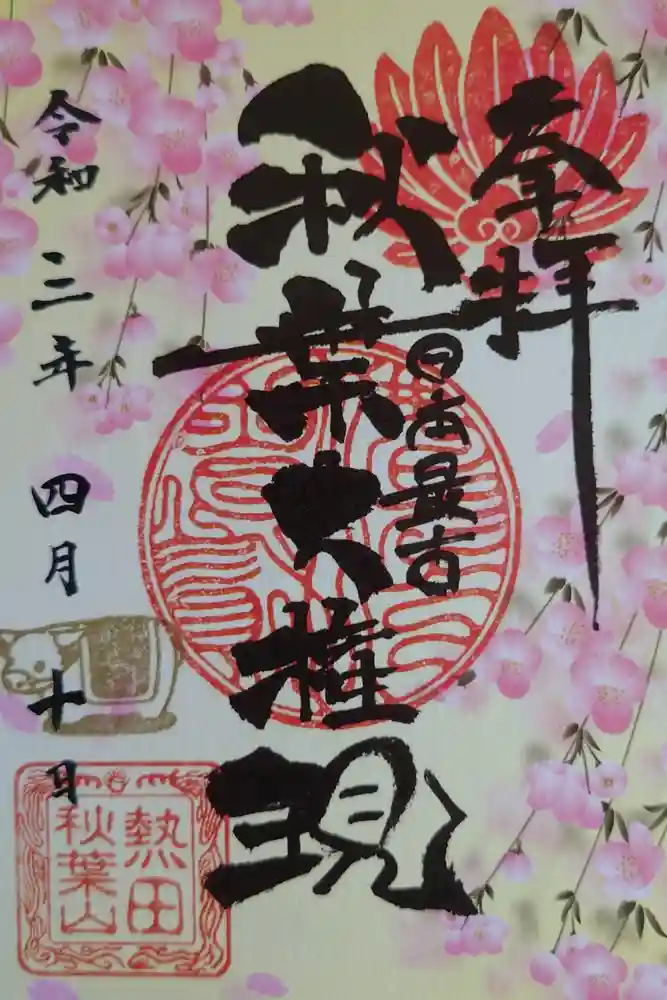 奉拝
日本最古
秋葉大権現
令和三年四月十日
熱田
秋葉山